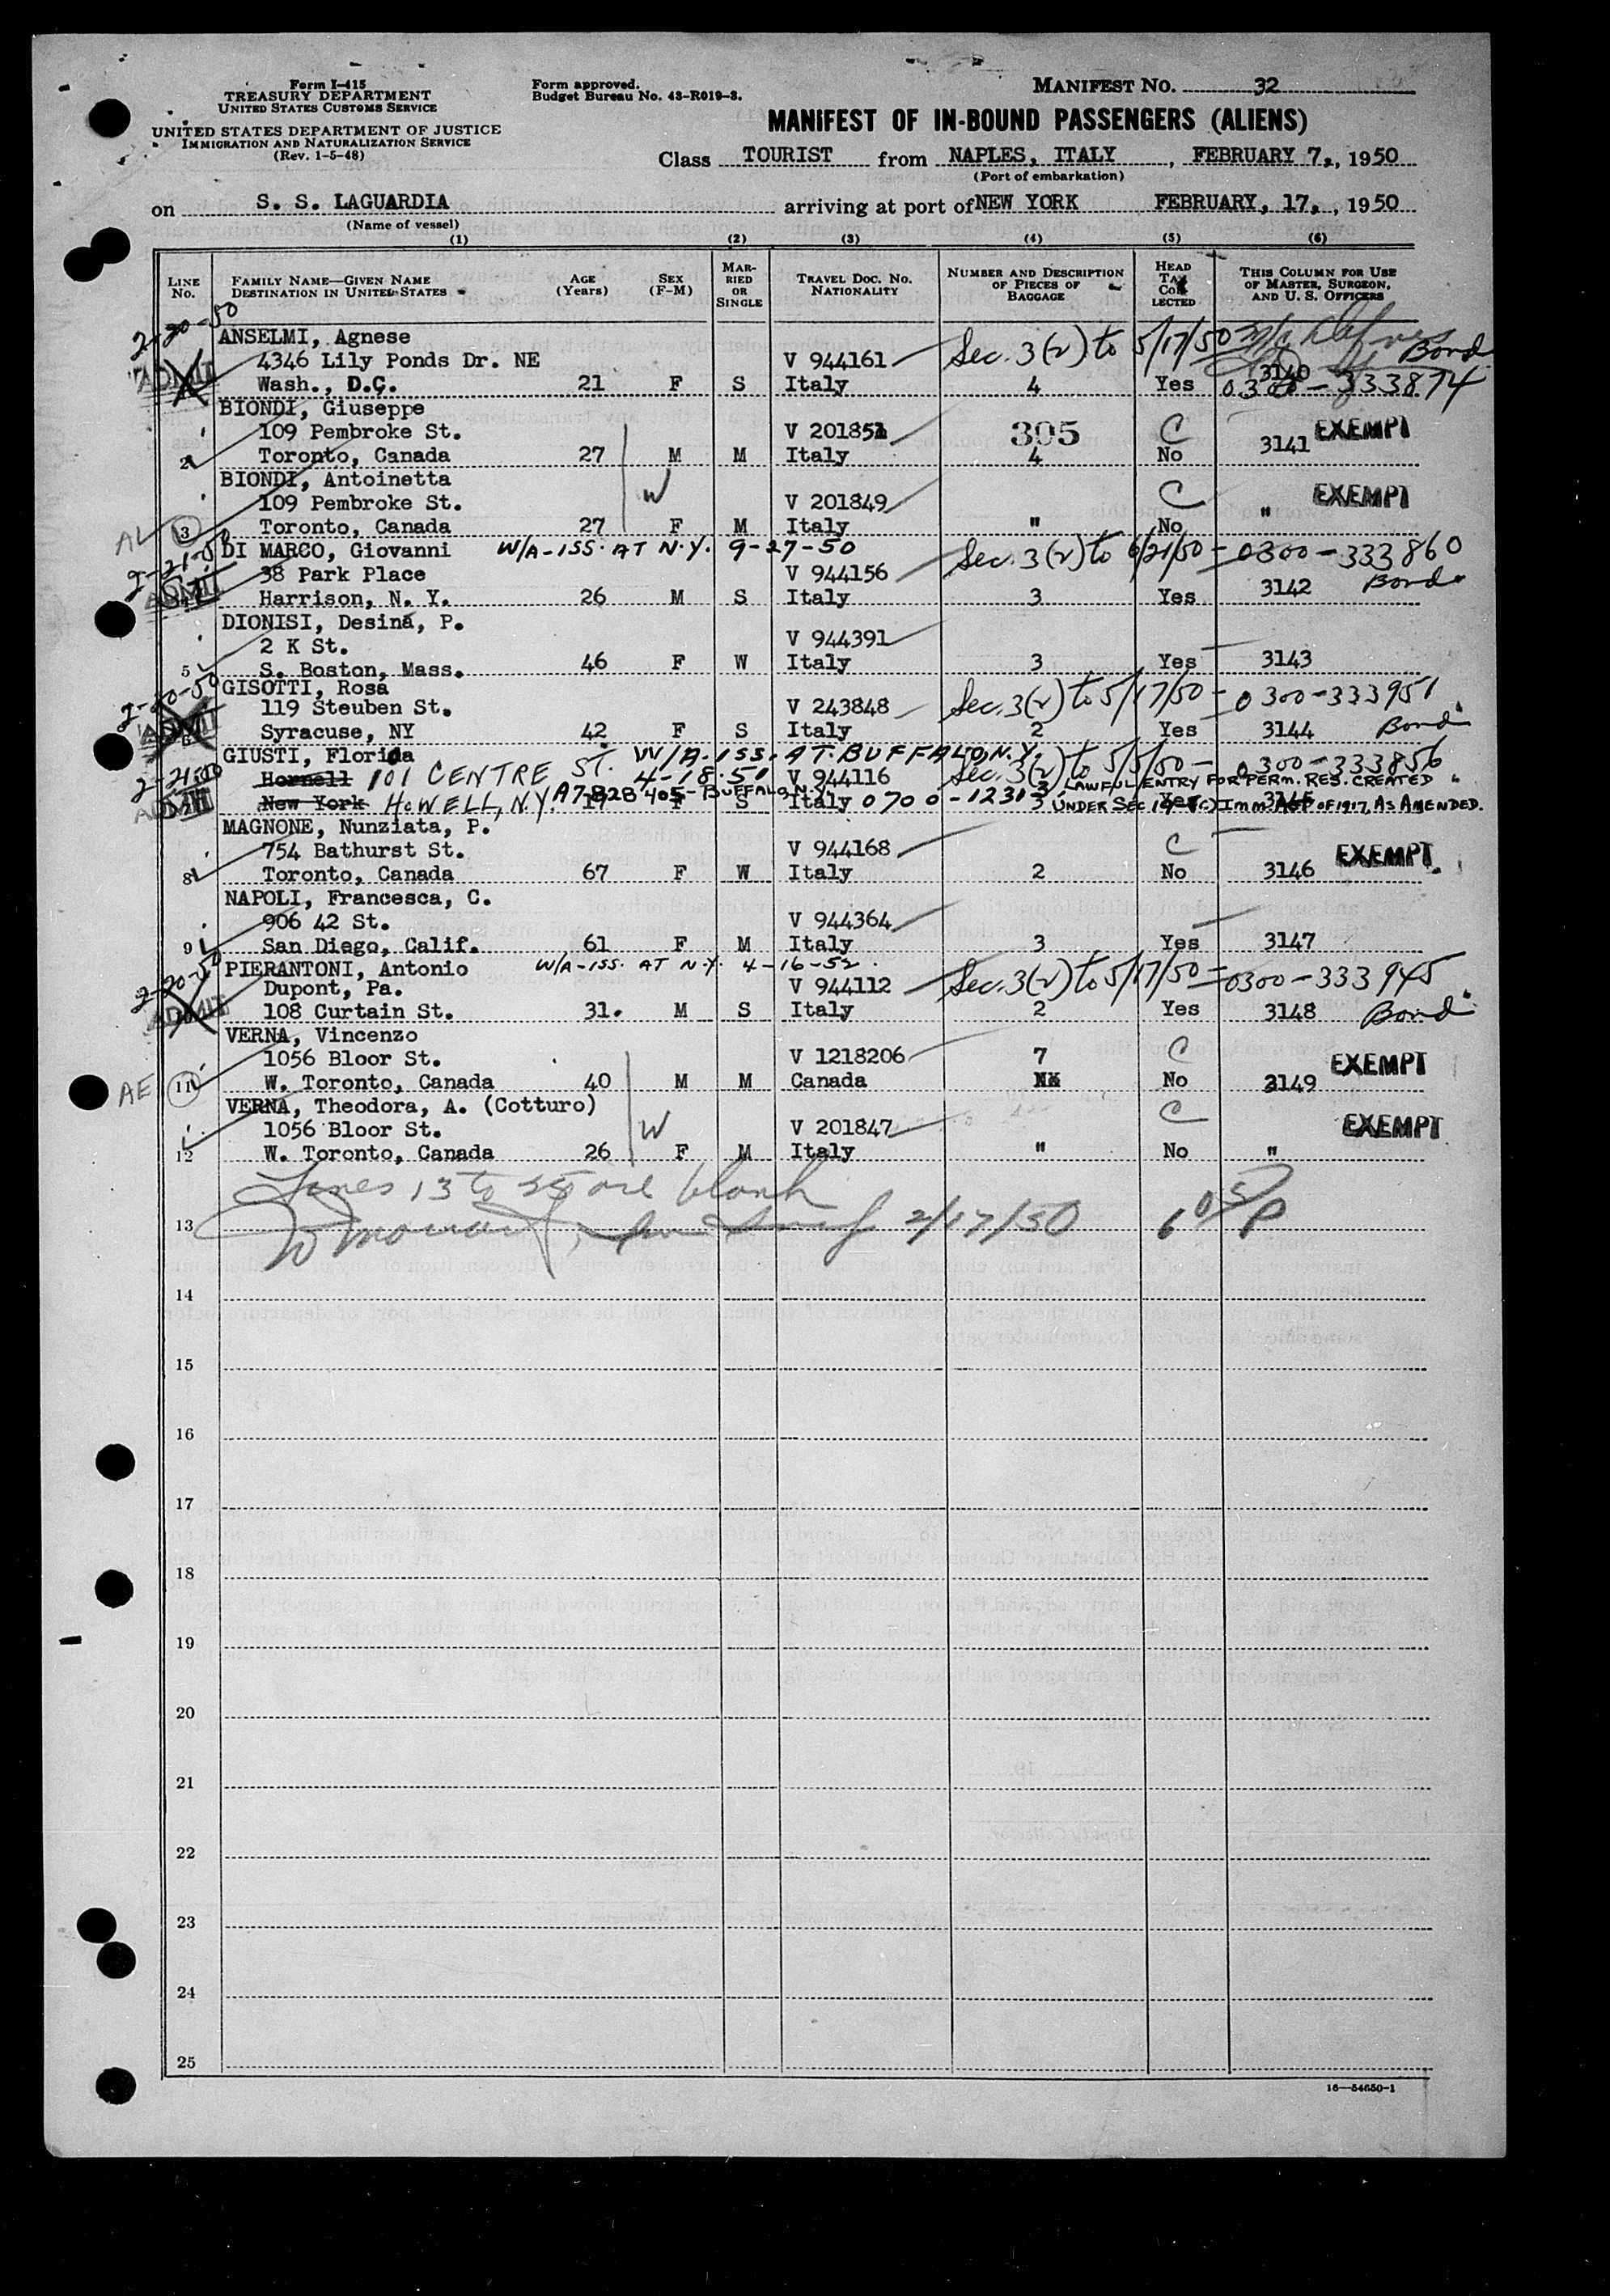 Form I-415
TREASURY DEPARTMENT
UNITED STATES CUSTOMS SERVICE
UNITED STATES DEPARTMENT OF JUSTICE
IMMIGRATION AND NATURALIZATION SERVICE
(Rev. 1-5-48)
Form approved.
Budget Bureau No. 43-R019-3.
MANIFEST NO. 32
MANIFEST OF IN-BOUND PASSENGERS (ALIENS)
Class TOURIST from NAPLES, ITALY, FEBRUARY 7,, 1950
(Port of embarkation)
on S. S. LAGUARDIA arriving at port of NEW YORK FEBRUARY, 17,, 1950
(Name of vessel)
(1) (2) (3) (4) (5) (6)
LINE No. FAMILY NAME—GIVEN NAME DESTINATION IN UNITED STATES AGE (Years) SEX (F-M) MARRIED OR SINGLE TRAVEL DOC. NO. NATIONALITY NUMBER AND DESCRIPTION OF PIECES OF BAGGAGE HEAD TAX COLLECTED THIS COLUMN FOR USE OF MASTER, SURGEON, AND U. S. OFFICERS
2-20-50 ANSELMI, Agnese Sec. 3(2) to 5/17/50 Bond
ADMIT 4346 Lily Ponds Dr. NE V 944161 3140
Wash., D.C. 21 F S Italy 4 Yes 0300-333874
BIONDI, Giuseppe
109 Pembroke St. V 201851 395 C 3141 EXEMPT
2 Toronto, Canada 27 M M Italy 4 No
BIONDI, Antoinetta W
109 Pembroke St. V 201849 C " EXEMPT
AL 3 Toronto, Canada 27 F M Italy " No
2-21-50 DI MARCO, Giovanni W/A-ISS. AT N.Y. 9-27-50 Sec. 3(2) to 6/21/50 - 0300-333860
38 Park Place V 944156 Bond
ADMIT Harrison, N. Y. 26 M S Italy 3 Yes 3142
DIONISI, Desina, P.
2 K St. V 944391
5 S. Boston, Mass. 46 F W Italy 3 Yes 3143
2-20-50 GISOTTI, Rosa Sec. 3(2) to 5/17/50 - 0300-333951
119 Steuben St. V 243848 Bond
ADMIT 6 Syracuse, NY 42 F S Italy 2 Yes 3144
GIUSTI, Florida W/A-ISS. AT. BUFFALO, N.Y. Sec. 3(2) to 5/5/50 - 0300-333856
2-21-50 Hornell 101 CENTRE ST. 4-18-51 V 944116 LAWFUL ENTRY FOR PERM. RES. CREATED
ADMIT New York HOWELL, N.Y. A7828405-BUFFALO, N.Y. F S Italy 0700-12313 3 UNDER SEC. 19-(C) IMM. ACT OF 1917, AS AMENDED.
MAGNONE, Nunziata, P.
754 Bathurst St. V 944168 C EXEMPT
8 Toronto, Canada 67 F W Italy 2 No 3146
NAPOLI, Francesca, C.
906 42 St. V 944364
9 San Diego, Calif. 61 F M Italy 3 Yes 3147
2-20-50 PIERANTONI, Antonio W/A-ISS. AT N.Y. 4-16-52. Sec. 3(2) to 5/17/50 - 0300-333945
Dupont, Pa. V 944112
ADMIT 108 Curtain St. 31. M S Italy 2 Yes 3148 Bond
VERNA, Vincenzo
1056 Bloor St. V 1218206 7 C EXEMPT
AE 11 W. Toronto, Canada 40 M M Canada No 3149
VERNA, Theodora, A. (Cotturo) W
1056 Bloor St. V 201847 C EXEMPT
12 W. Toronto, Canada 26 F M Italy " No "
Lines 13 to 25 are blank
13 2/17/50
14
15
16
17
18
19
20
21
22
23
24
25
16—54650-1